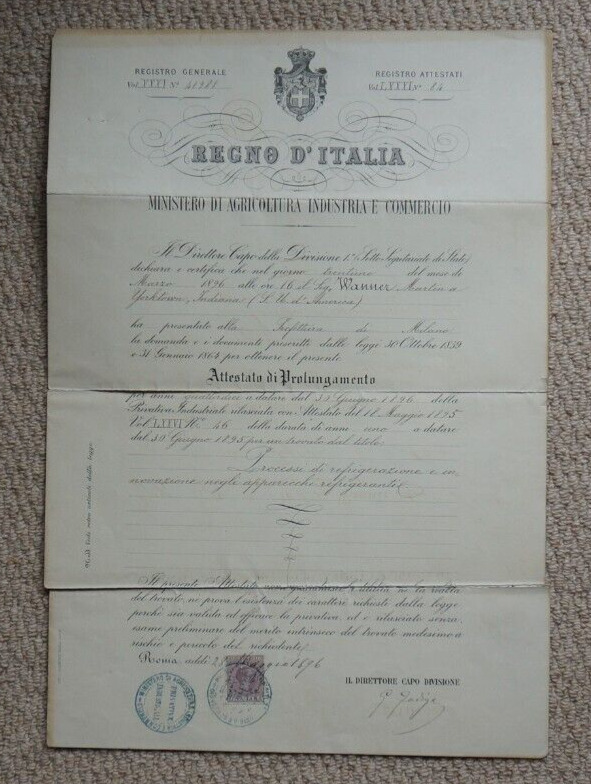 REGISTRO GENERALE
Vol. XXXI Nº 40988
REGISTRO ATTESTATI
Vol. LXXXI Nº 84
REGNO D'ITALIA
MINISTERO DI AGRICOLTURA INDUSTRIA E COMMERCIO
Il Direttore Capo della Divisione 1ª (Sotto Segretariato di Stato)
dichiara e certifica che nel giorno trentuno del mese di
Marzo 1896 alle ore 16 il Sig. Wanner Martin a
Yorktown, Indiana (S. U. d'America)
ha presentato alla Prefettura di Milano
la domanda e i documenti prescritti dalle leggi 30 Ottobre 1859
e 31 Gennaio 1864 per ottenere il presente
Attestato di Prolungamento
per anni quattordici a datare dal 30 Giugno 1896 della
Privativa Industriale rilasciata con Attestato del 18 Maggio 1895
Vol. LXXVI Nº 46 della durata di anni uno a datare
dal 30 Giugno 1895 per un trovato dal titolo:
Processi di refrigerazione e in-
novazione negli apparecchi refrigeranti.
Il presente Attestato non guarentisce l'utilità nè la realtà
del trovato, nè prova l'esistenza dei caratteri richiesti dalla legge
perchè sia valida ed efficace la privativa, ed è rilasciato senza
esame preliminare del merito intrinseco del trovato medesimo a
rischio e pericolo del richiedente.
Roma, addì 28 1896
IL DIRETTORE CAPO DIVISIONE